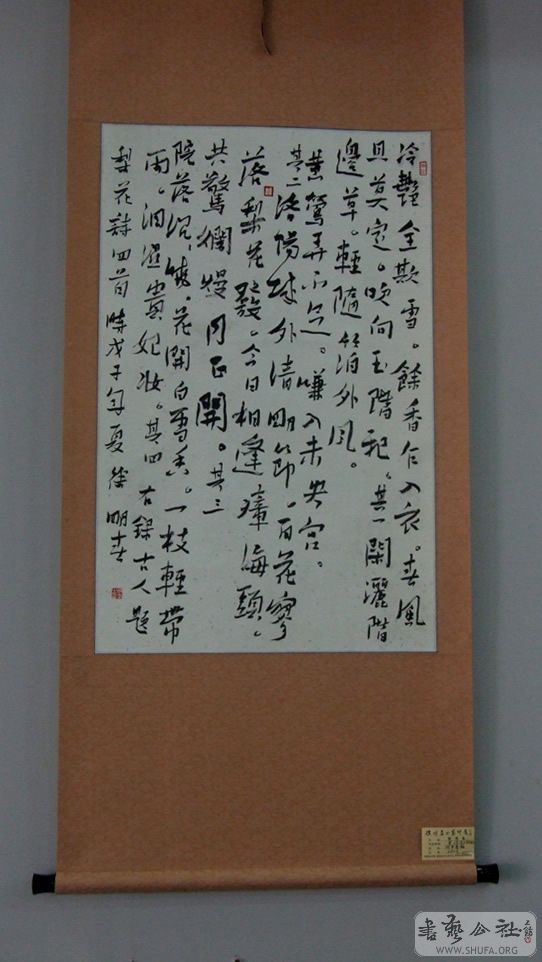 冷艳全欺雪。餘香乍入衣。春風
且莫定。吹向玉階飛。其一 閑灑階
邊草。輕隨箔外風。
黄鶯弄不足。嗛入未央宫。
其二 洛陽城外清明節。百花寥
落梨花發。今日相逢瘴海頭。
共驚爛熳開正開。其三
院落沉沉曉。花開白雪香。一枝輕帶
雨。泪湿貴妃妆。其四 右録古人題
梨花詩四首 時戊子年夏 徐明春
書藝公社
WWW.SHUFA.ORG